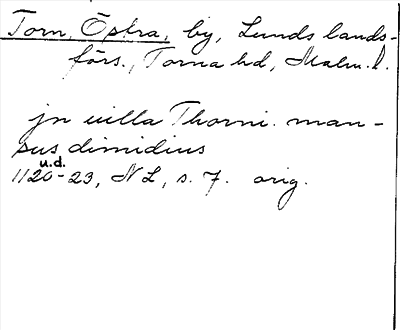 Torn, Östra, by, Lunds lands-
förs., Torna hd, Malm. l.
jn uilla Thorni. man-
sus dimidius
u.d.
1120-23, NL, s. 7. orig.